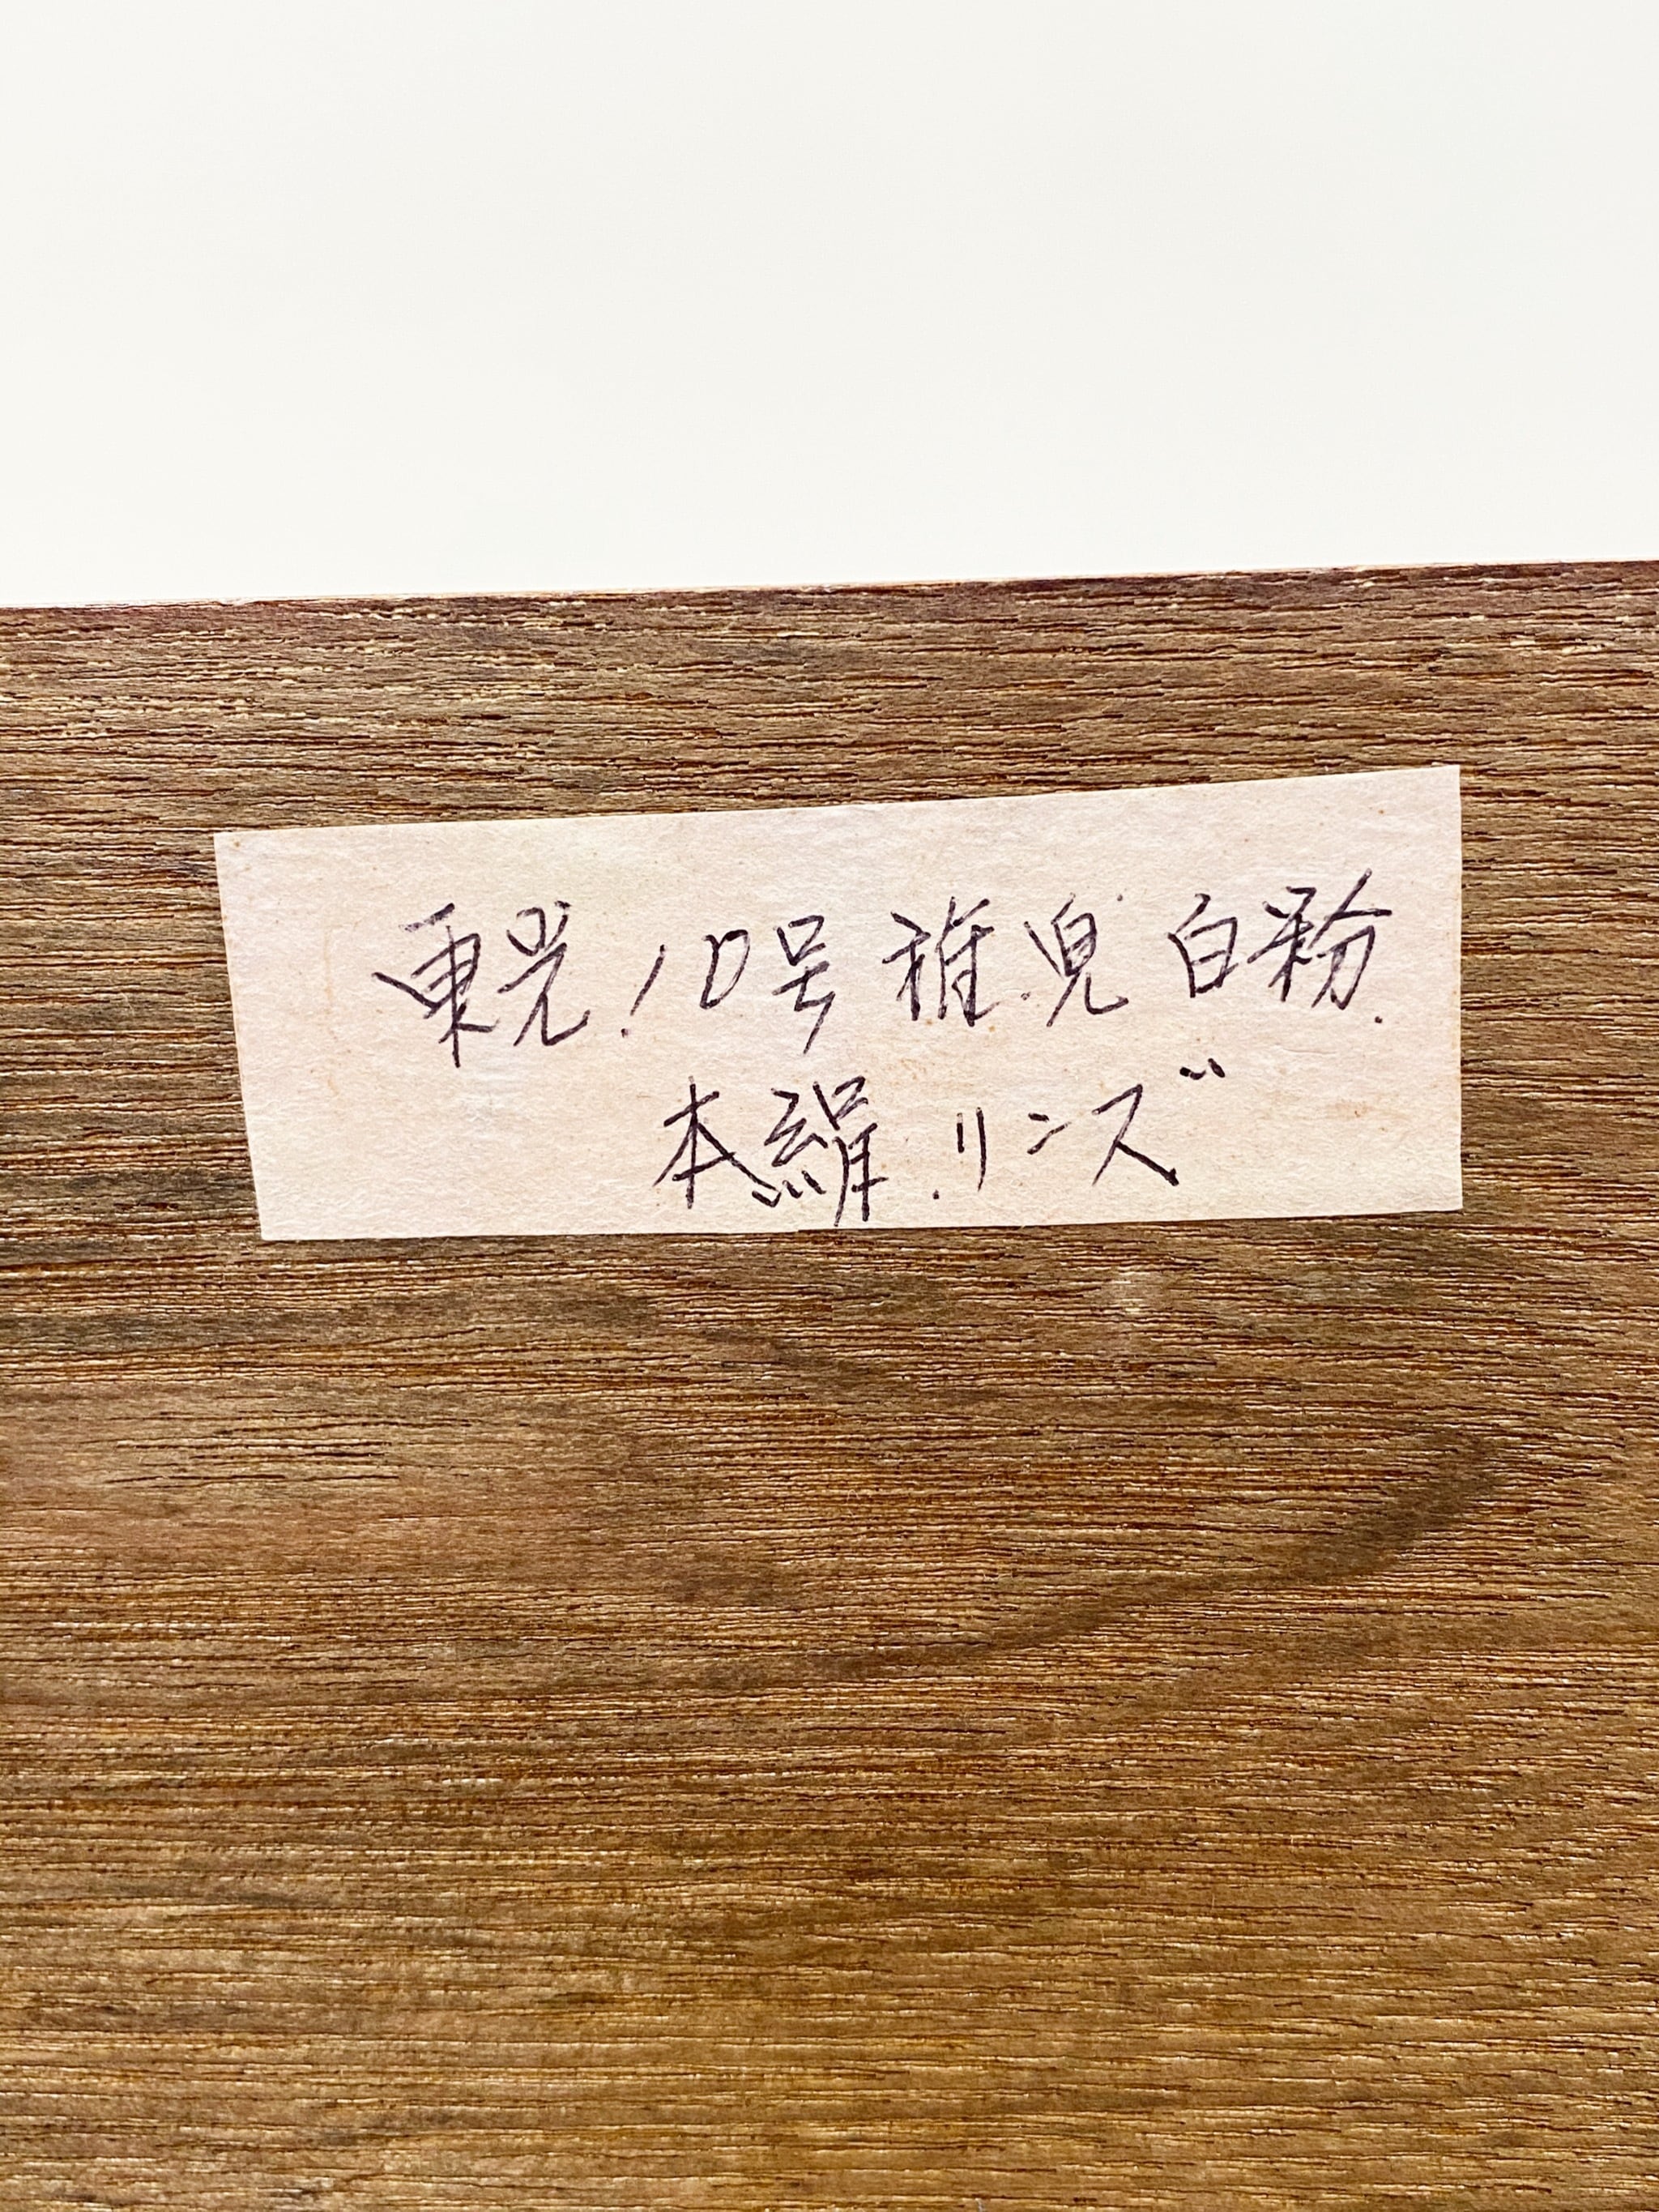 東光.10号稚児白粉.
本絹.リンズ